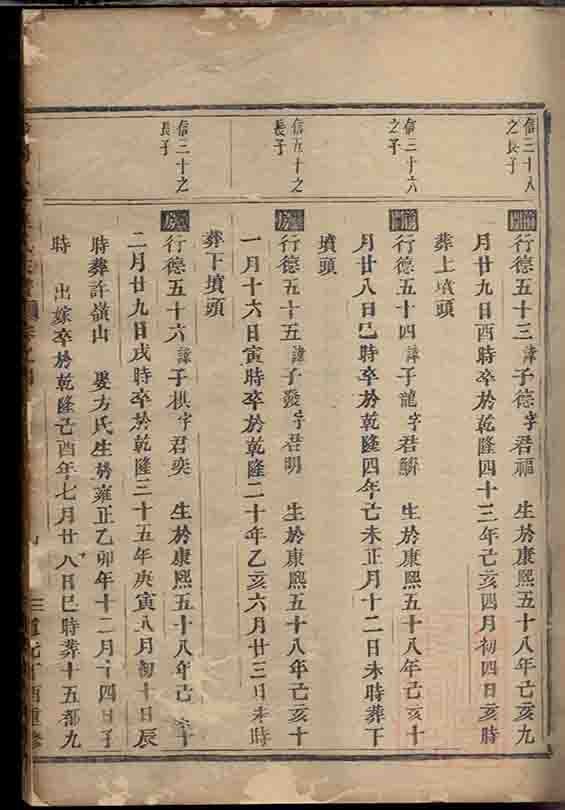 信三十八
之長子
行德五十三諱子德字君福 生於康熙五十八年己亥九
月廿九日酉時卒於乾隆四十三年己亥四月初四日亥時
葬上墳頭
信三十六
之子
行德五十四諱子龍字君 生於康熙五十八年己亥十
月廿八日巳時卒於乾隆四年己未正月十二日未時葬下
墳頭
信五十之
長子
行德五十五諱子發字君明 生於康熙五十八年己亥十
一月十六日寅時卒於乾隆二十年乙亥六月廿三日未時
葬下墳頭
信三十之
長子
行德五十六諱子棋字君奕 生於康熙五十八年己 十
二月廿九日戌時卒於乾隆三十五年庚寅八月初十日辰
時葬許嶺山 娶方氏生於雍正乙卯年十二月十四日子
時 出嫁卒於乾隆己酉年七月廿八日巳時葬十五都九